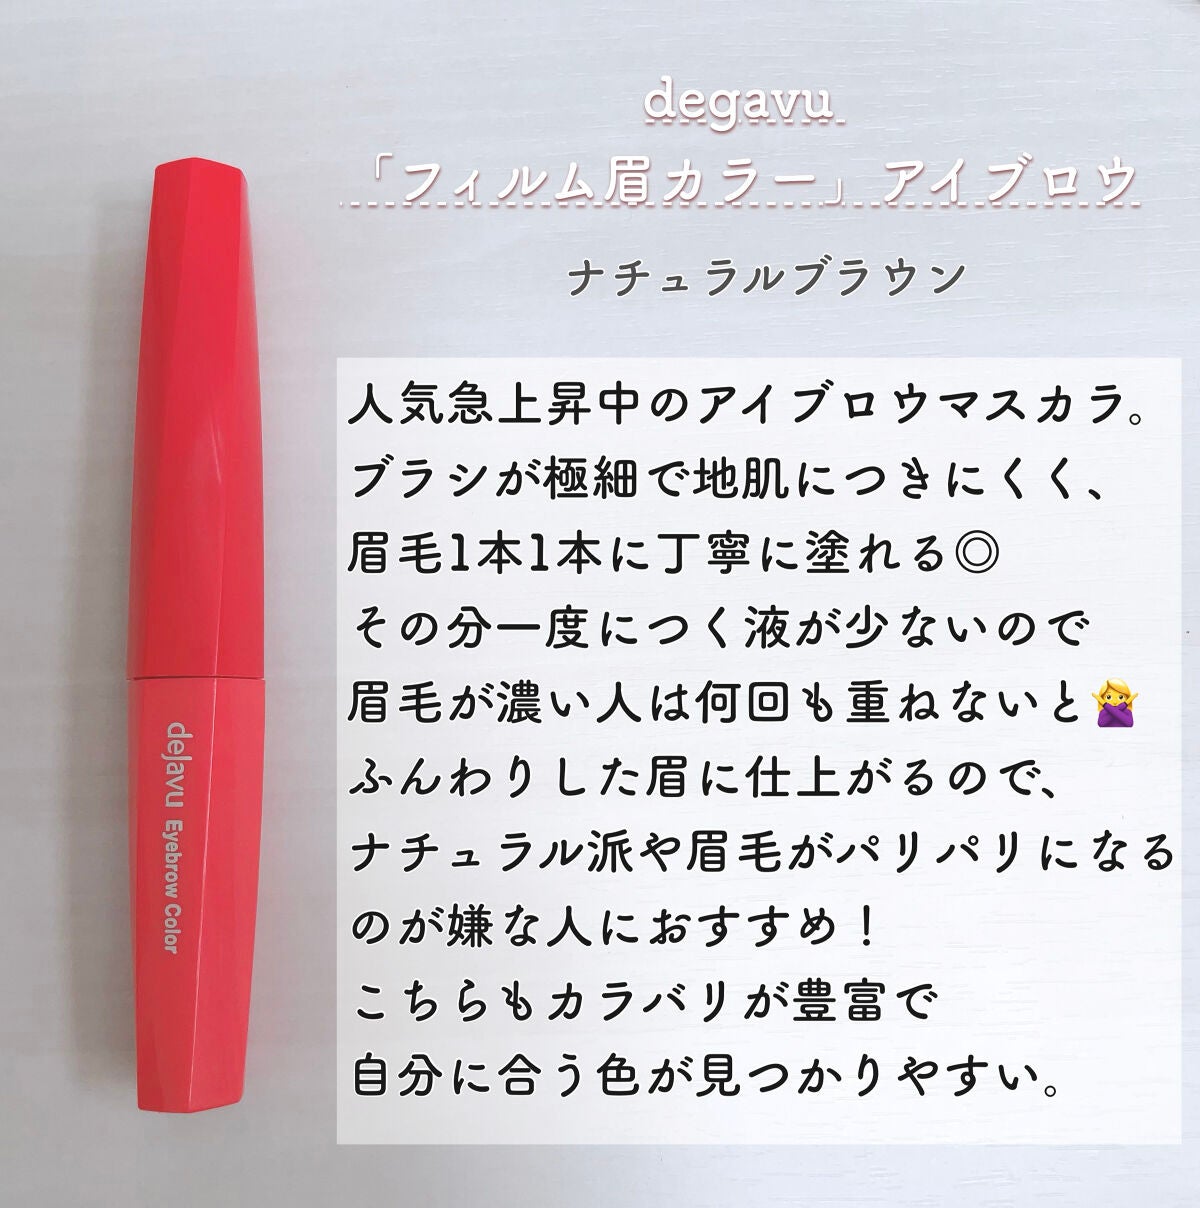 degavu
「フィルム眉カラー」アイブロウ
ナチュラルブラウン
人気急上昇中のアイブロウマスカラ。
ブラシが極細で地肌につきにくく、
眉毛1本1本に丁寧に塗れる◎
その分一度につく液が少ないので
眉毛が濃い人は何回も重ねないと🙅‍♀️
ふんわりした眉に仕上がるので、
ナチュラル派や眉毛がパリパリになる
のが嫌な人におすすめ！
こちらもカラバリが豊富で
自分に合う色が見つかりやすい。
dejavu Eyebrow Color